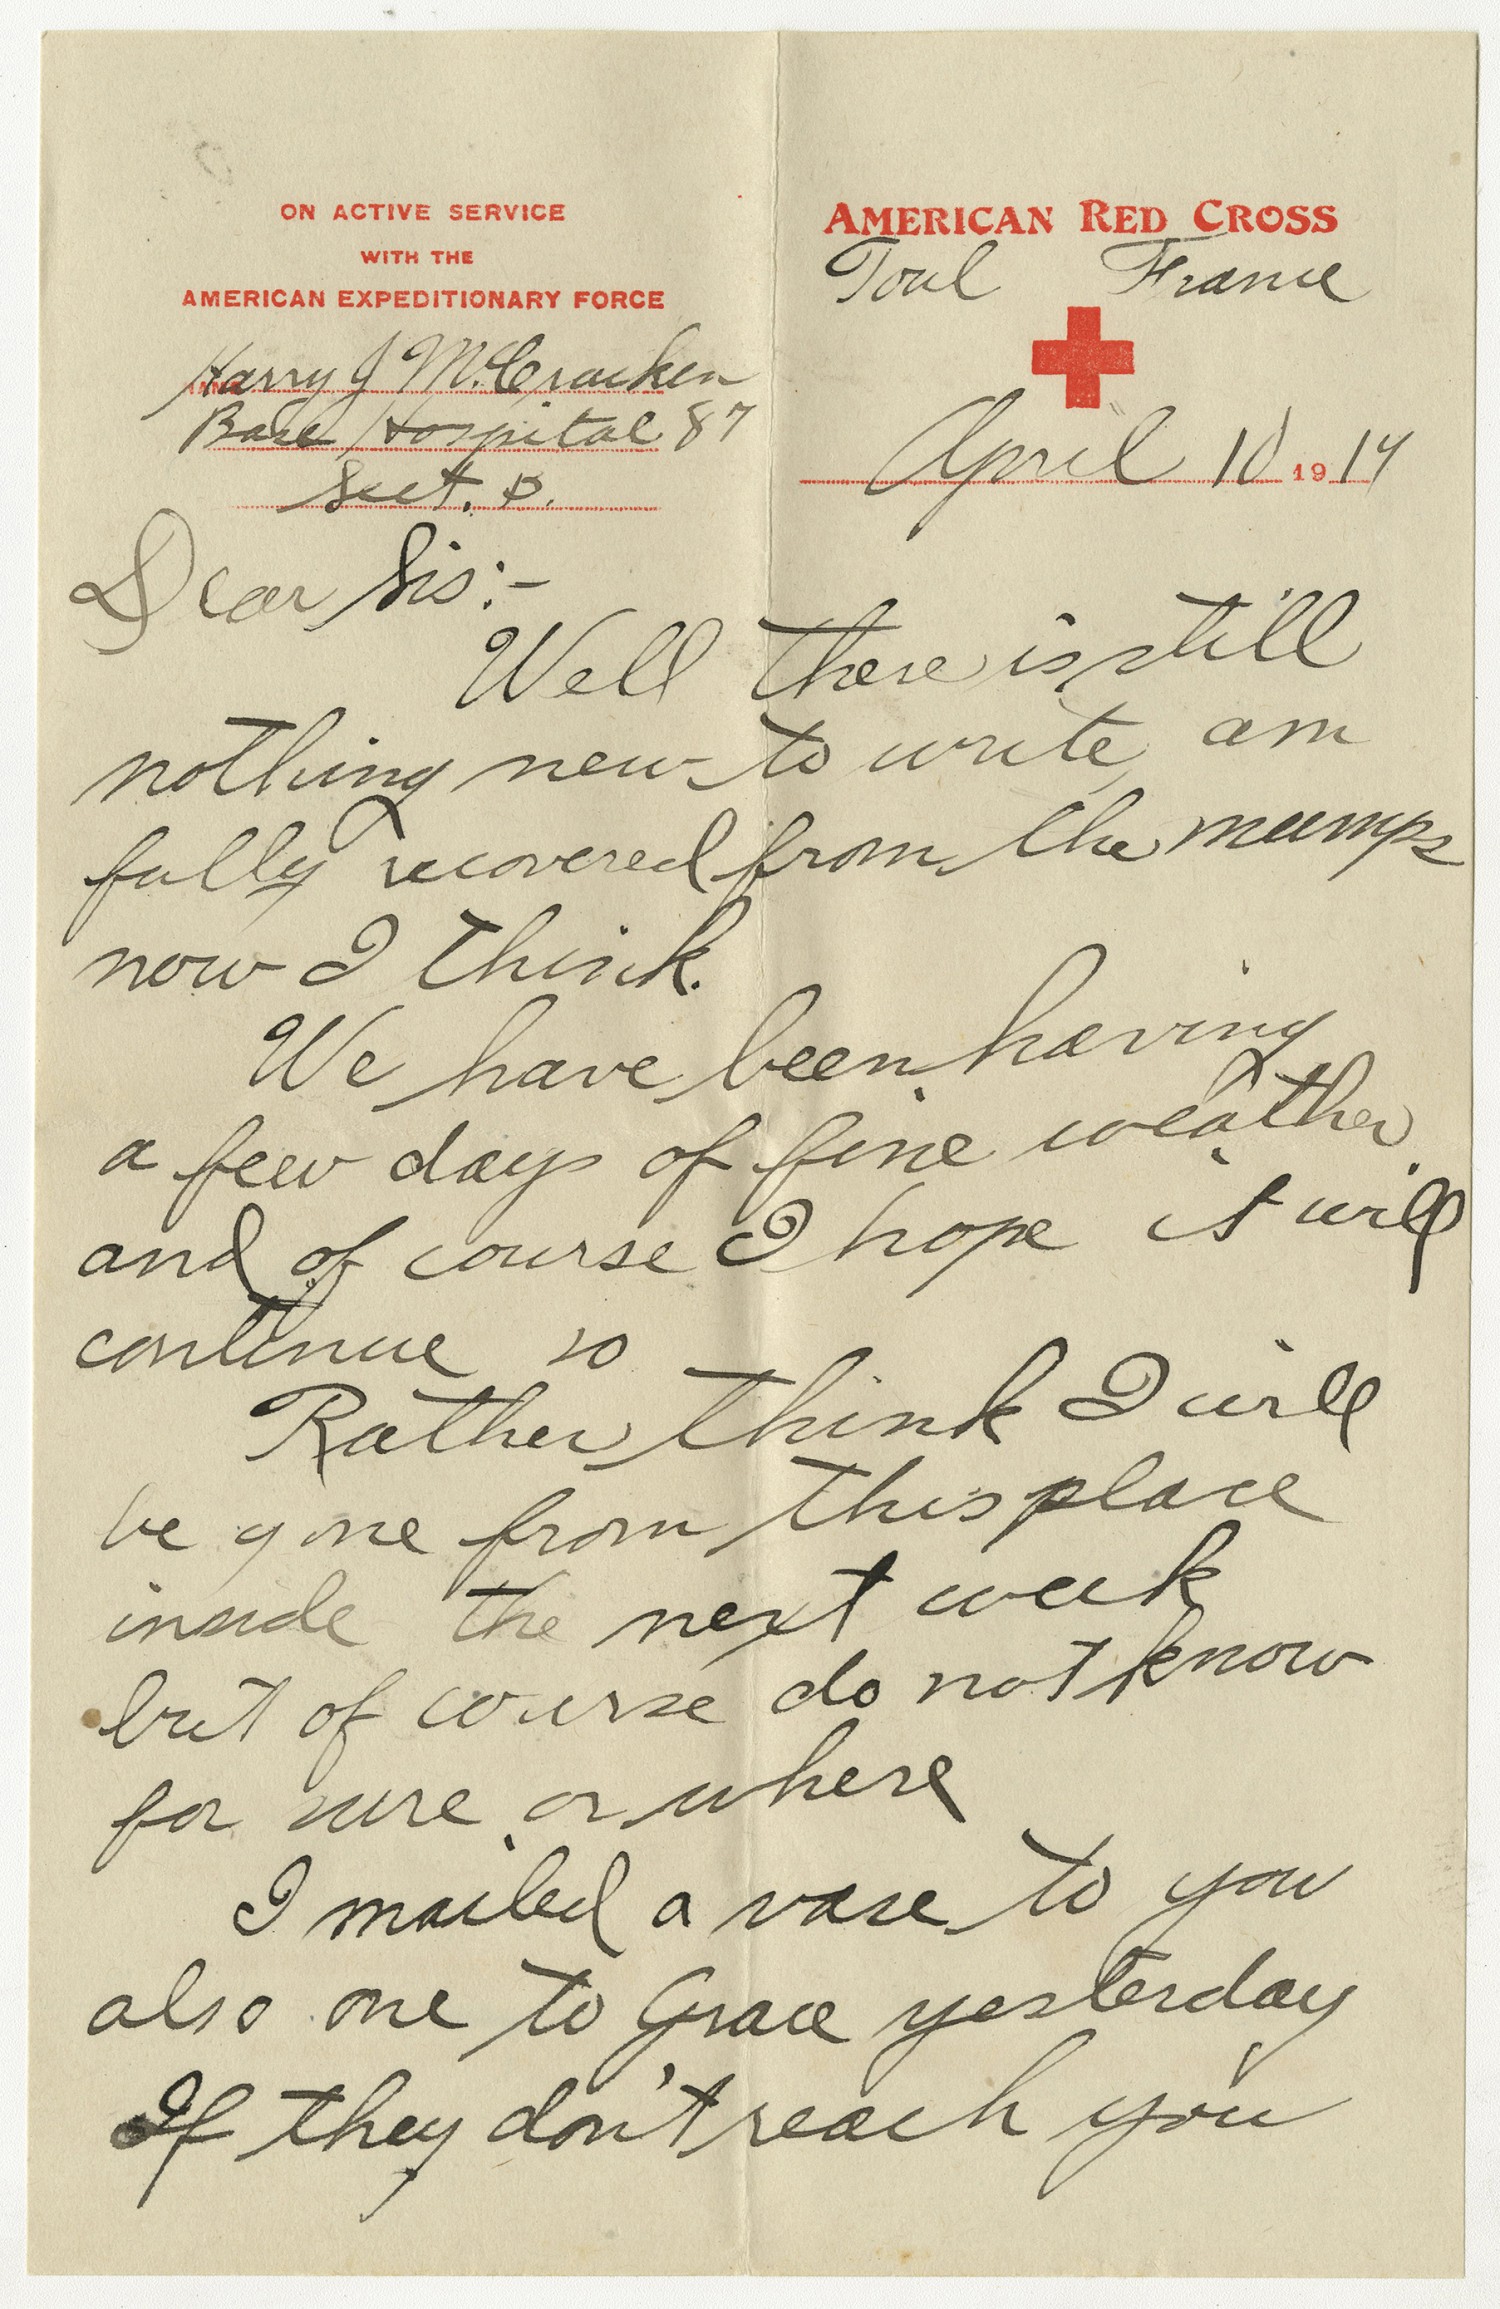 ON ACTIVE SERVICE
WITH THE
AMERICAN EXPEDITIONARY FORCE
Harry J McCracken
Base Hospital 87
Sect. B.
AMERICAN RED CROSS
Toul France
April 10 1919
Dear Sis:-
Well there is still
nothing new to write, am
fully recovered from the mumps
now I think.
We have been having
a few days of fine weather,
and of course I hope it will
continue so
Rather think I will
be gone from this place
inside the next week
but of course do not know
for sure, or where
I mailed a vase to you
also one to Grace yesterday
If they don't reach you